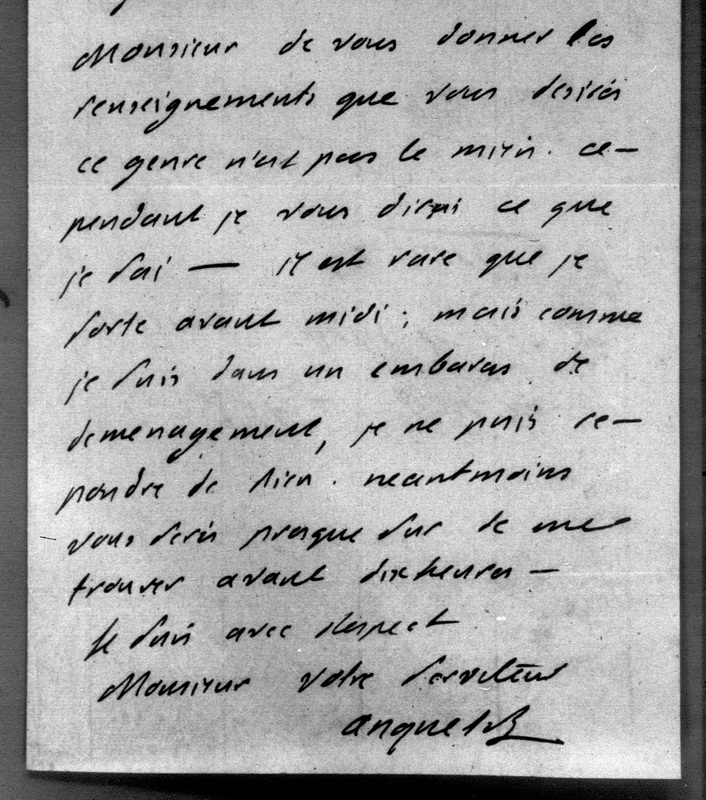 Monsieur de vous donner les
renseignements que vous desirés
ce genre n'est pas le mien. ce-
pendant je vous dirai ce que
je sai — il est rare que je
sorte avant midi; mais comme
je suis dans un embaras de
demenagement, je ne puis re-
pondre de rien. neantmoins
vous serés presque sur de me
trouver avant dix heures —
Je suis avec respect
Monsieur votre serviteur
anquetil